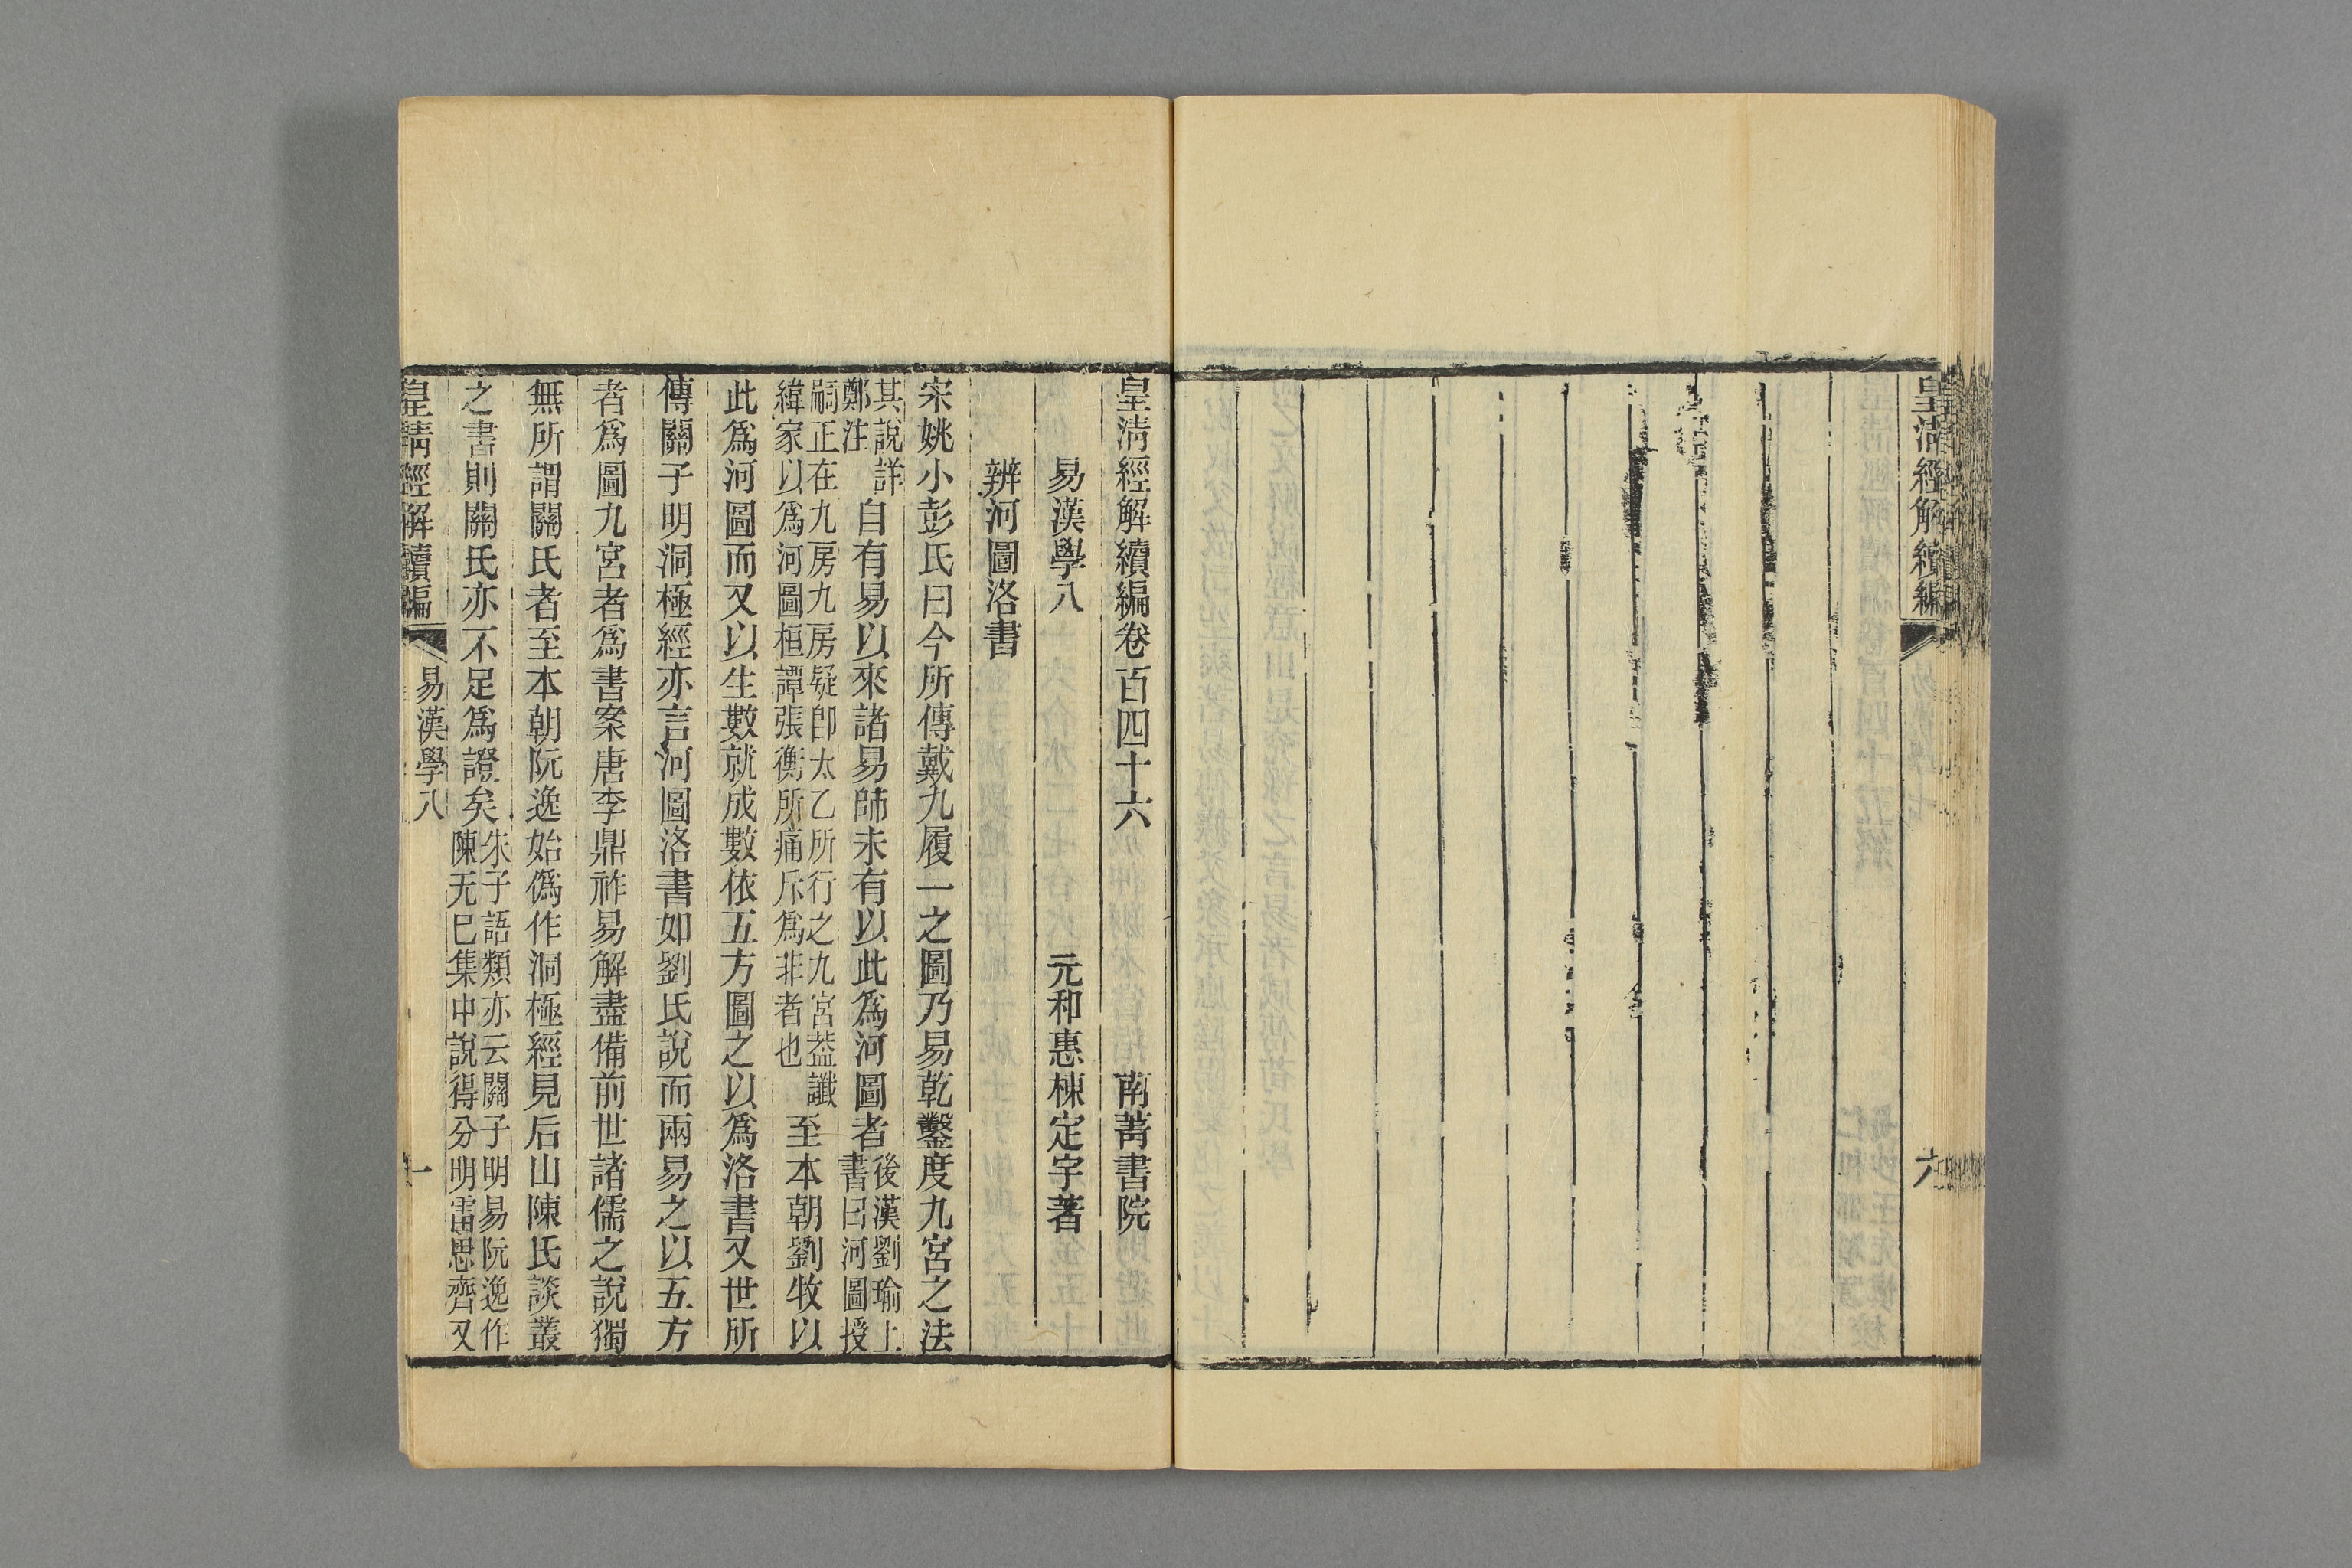 皇清經解續編
六
皇清經解續編卷百四十六 南菁書院
易漢學八 元和惠棟定宇著
辨河圖洛書
宋姚小彭氏曰今所傳戴九履一之圖乃易乾鑿度九宮之法
其說詳
鄭注
自有易以來諸易師未有以此爲河圖者
後漢劉瑜上
書曰河圖授
嗣正在九房九房疑卽太乙所行之九宮葢讖
緯家以爲河圖桓譚張衡所痛斥爲非者也
至本朝劉牧以
此爲河圖而又以生數就成數依五方圖之以爲洛書又世所
傳關子明洞極經亦言河圖洛書如劉氏說而兩易之以五方
者爲圖九宮者爲書案唐李鼎祚易解盡備前世諸儒之說獨
無所謂關氏者至本朝阮逸始僞作洞極經見后山陳氏談叢
之書則關氏亦不足爲證矣
朱子語類亦云關子明易阮逸作
陳无巳集中說得分明雷思齊又
皇清經解續編
易漢學八
一